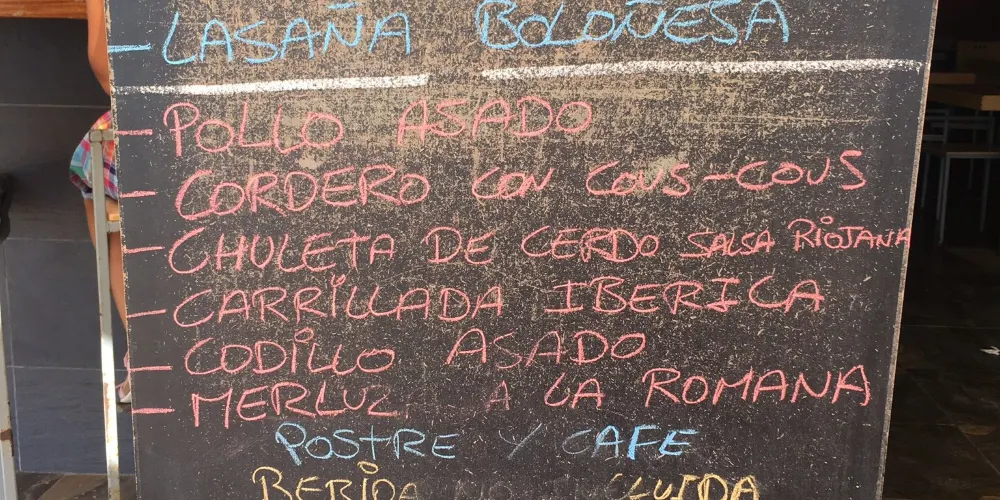 - LASAÑA BOLOÑESA
- POLLO ASADO
- CORDERO CON COUS-COUS
- CHULETA DE CERDO SALSA RIOJANA
- CARRILLADA IBERICA
- CODILLO ASADO
- MERLUZA A LA ROMANA
POSTRE Y CAFE
BEBIDA NO INCLUIDA